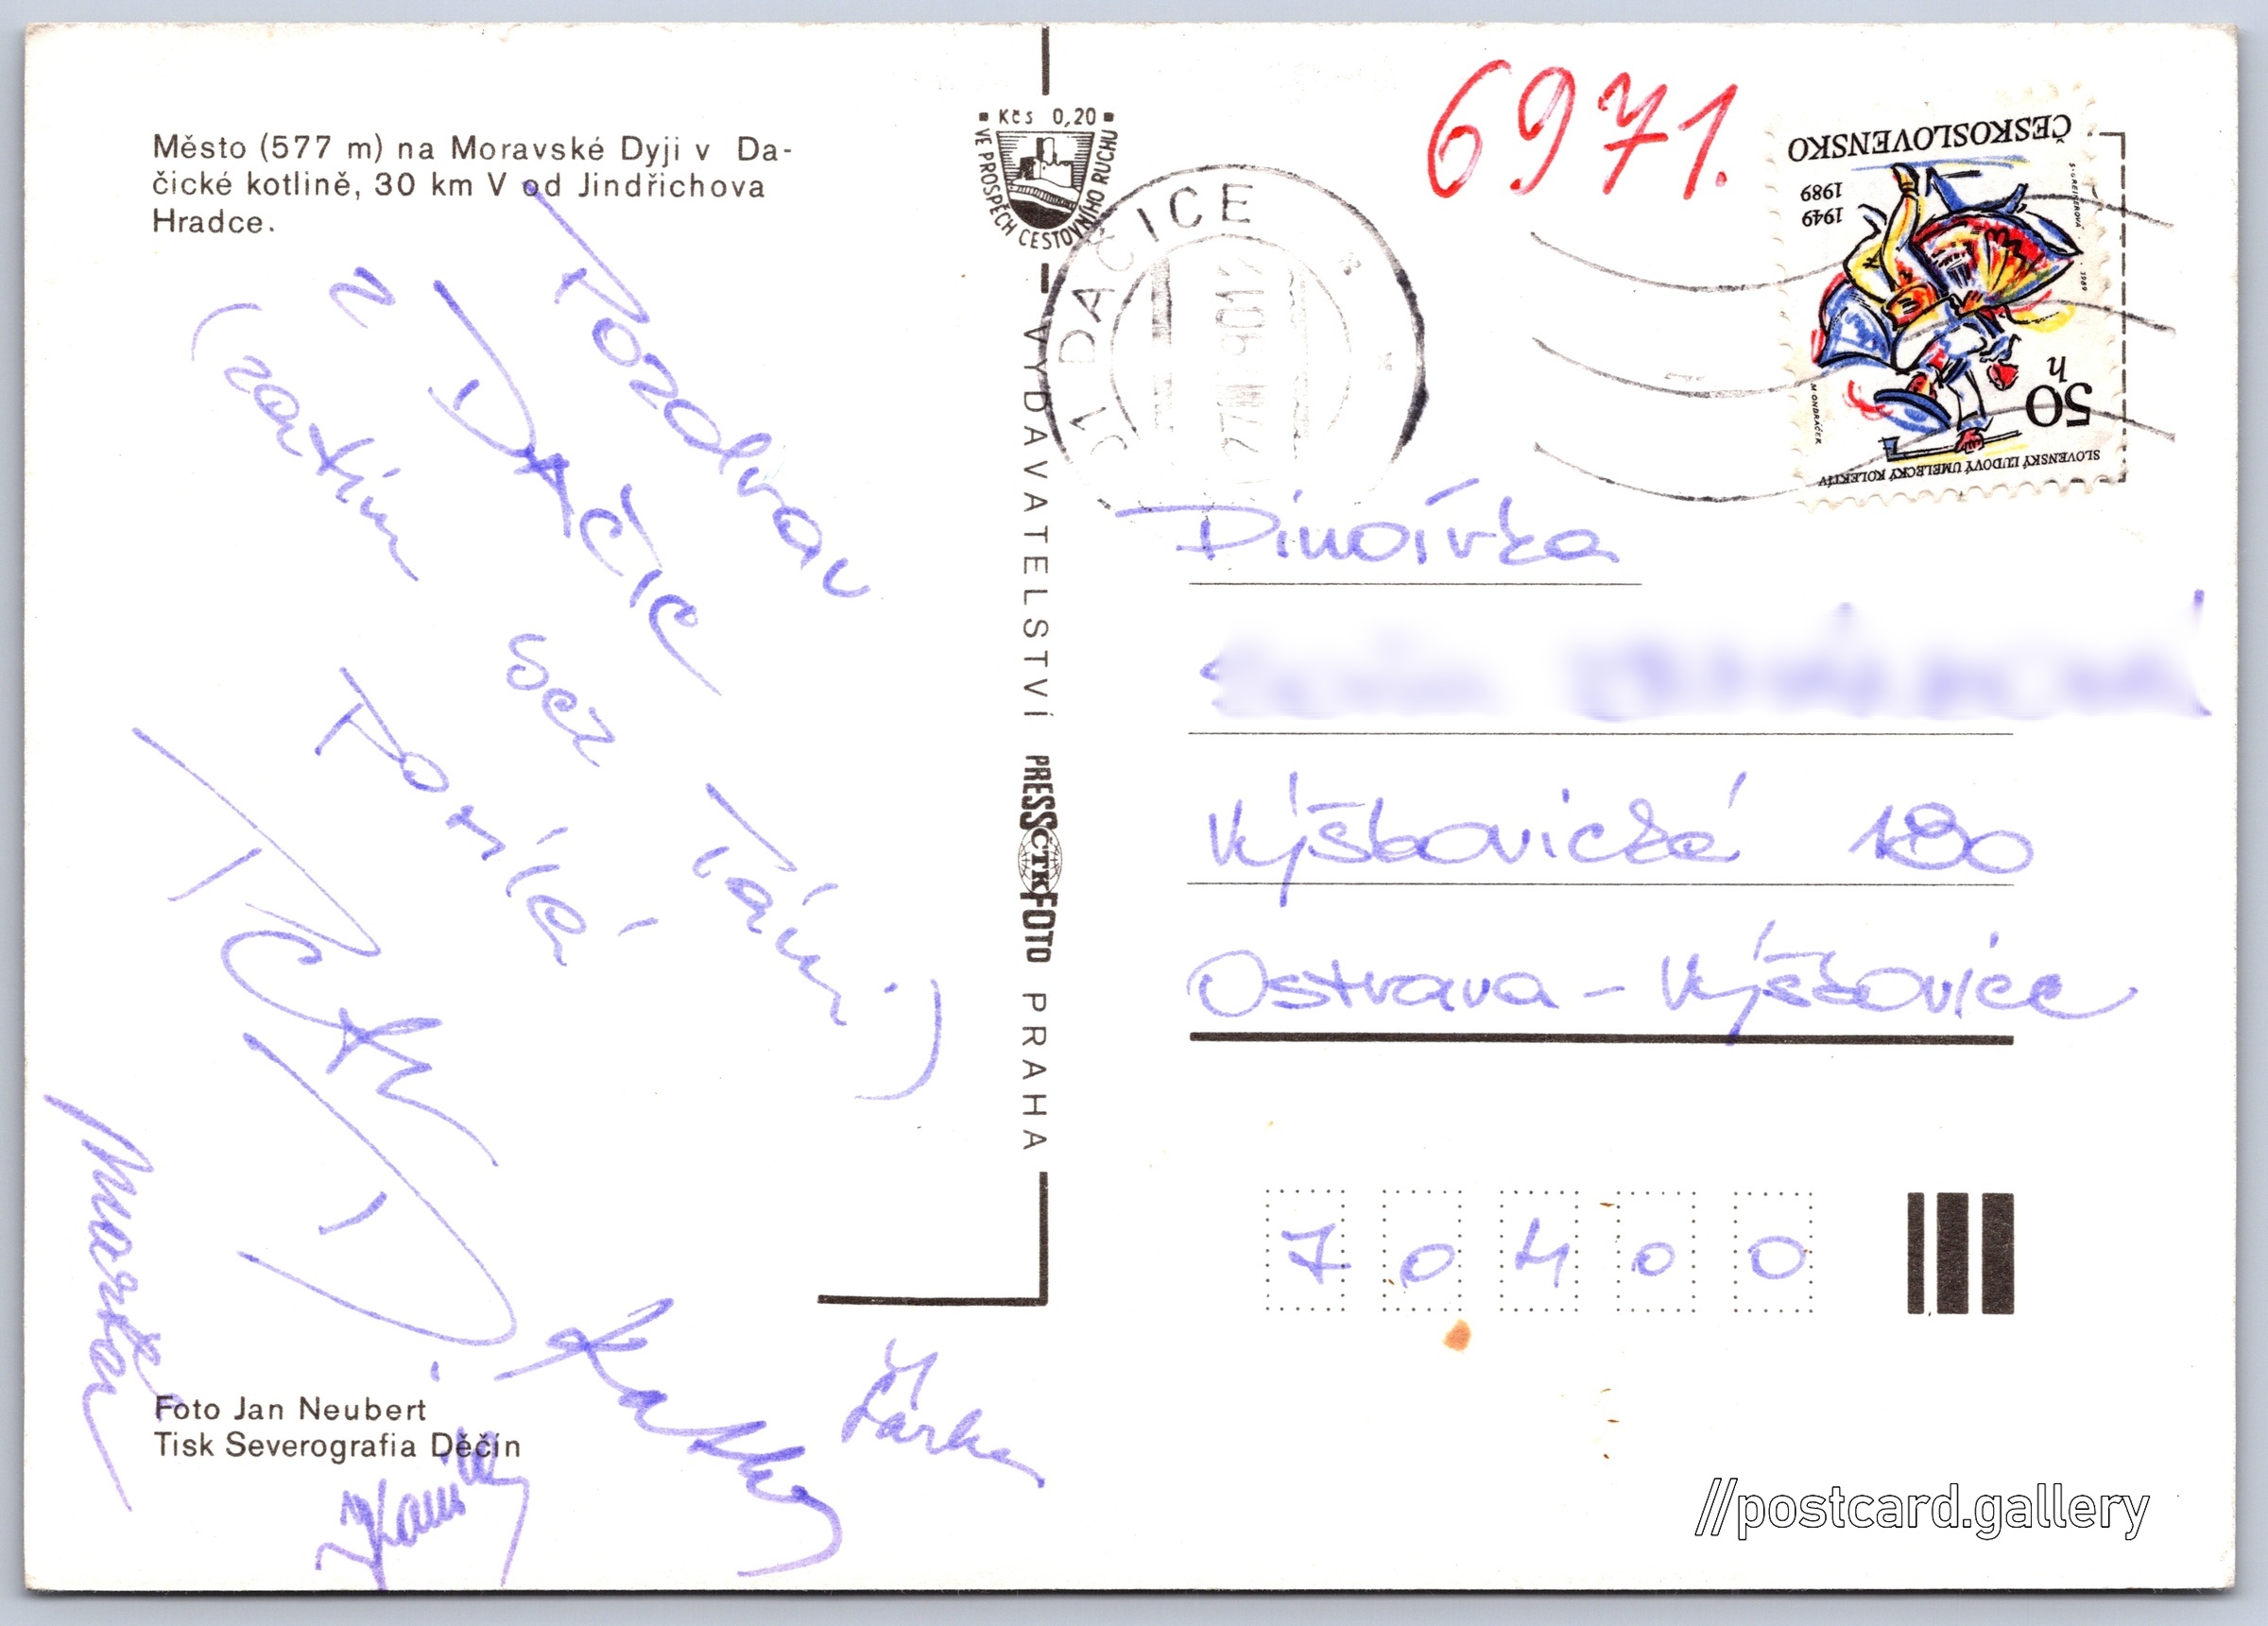 Město (577 m) na Moravské Dyji v Da-
čické kotlině, 30 km V od Jindřichova
Hradce.
Pozdrav
z DAČIC
(zatím bez Táni)
Posílá
Martin
Kamila
Šárka
Foto Jan Neubert
Tisk Severografia Děčín
Kčs 0,20
VE PROSPĚCH CESTOVNÍHO RUCHU
VYDAVATELSTVÍ PRESSFOTO PRAHA
ČTK
6971.
DAČICE
ČESKOSLOVENSKO
1949
1989
50
h
SLOVENSKÝ ĽUDOVÝ UMELECKÝ KOLEKTÍV
M. ONDRÁČEK
Výškovická 180
Ostrava - Výškovice
7 0 4 0 0
//postcard.gallery